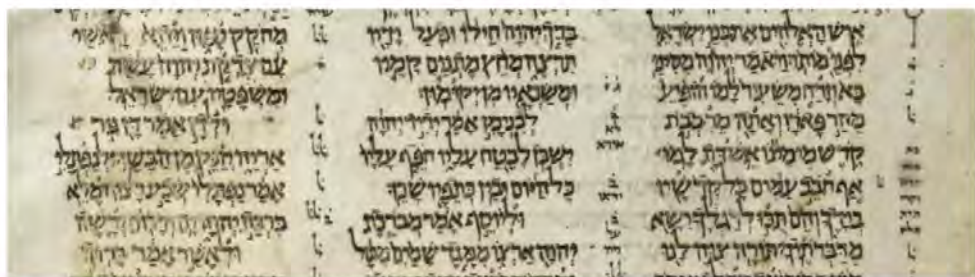 איש האלהים את בני ישראל
לפני מותו ויאמר יהוה מסיני
בא וזרח משעיר למו הופיע
מהר פארן ואתה מרבבת
קדש מימינו אשדת למו
אף חבב עמים כל קדשיו
בידך והם תכו לרגלך ישא
מדברתיך תורה צוה לנו
ברך יהוה חילו ופעל ידיו
תרצה מחץ מתנים קמיו
ומשנאיו מן יקומון
לבנימן אמר ידיד יהוה
ישכן לבטח עליו חפף עליו
כל היום ובין כתפיו שכן
וליוסף אמר מברכת
יהוה ארצו ממגד שמים מטל
מחקק ספון ויתא ראשי
עם צדקת יהוה עשה
ומשפטיו עם ישראל
ולדן אמר דן גור
אריה יזנק מן הבשן ולנפתלי
אמר נפתלי שבע רצון ומלא
ברכת יהוה ים ודרום ירשה
ולאשר אמר ברוך